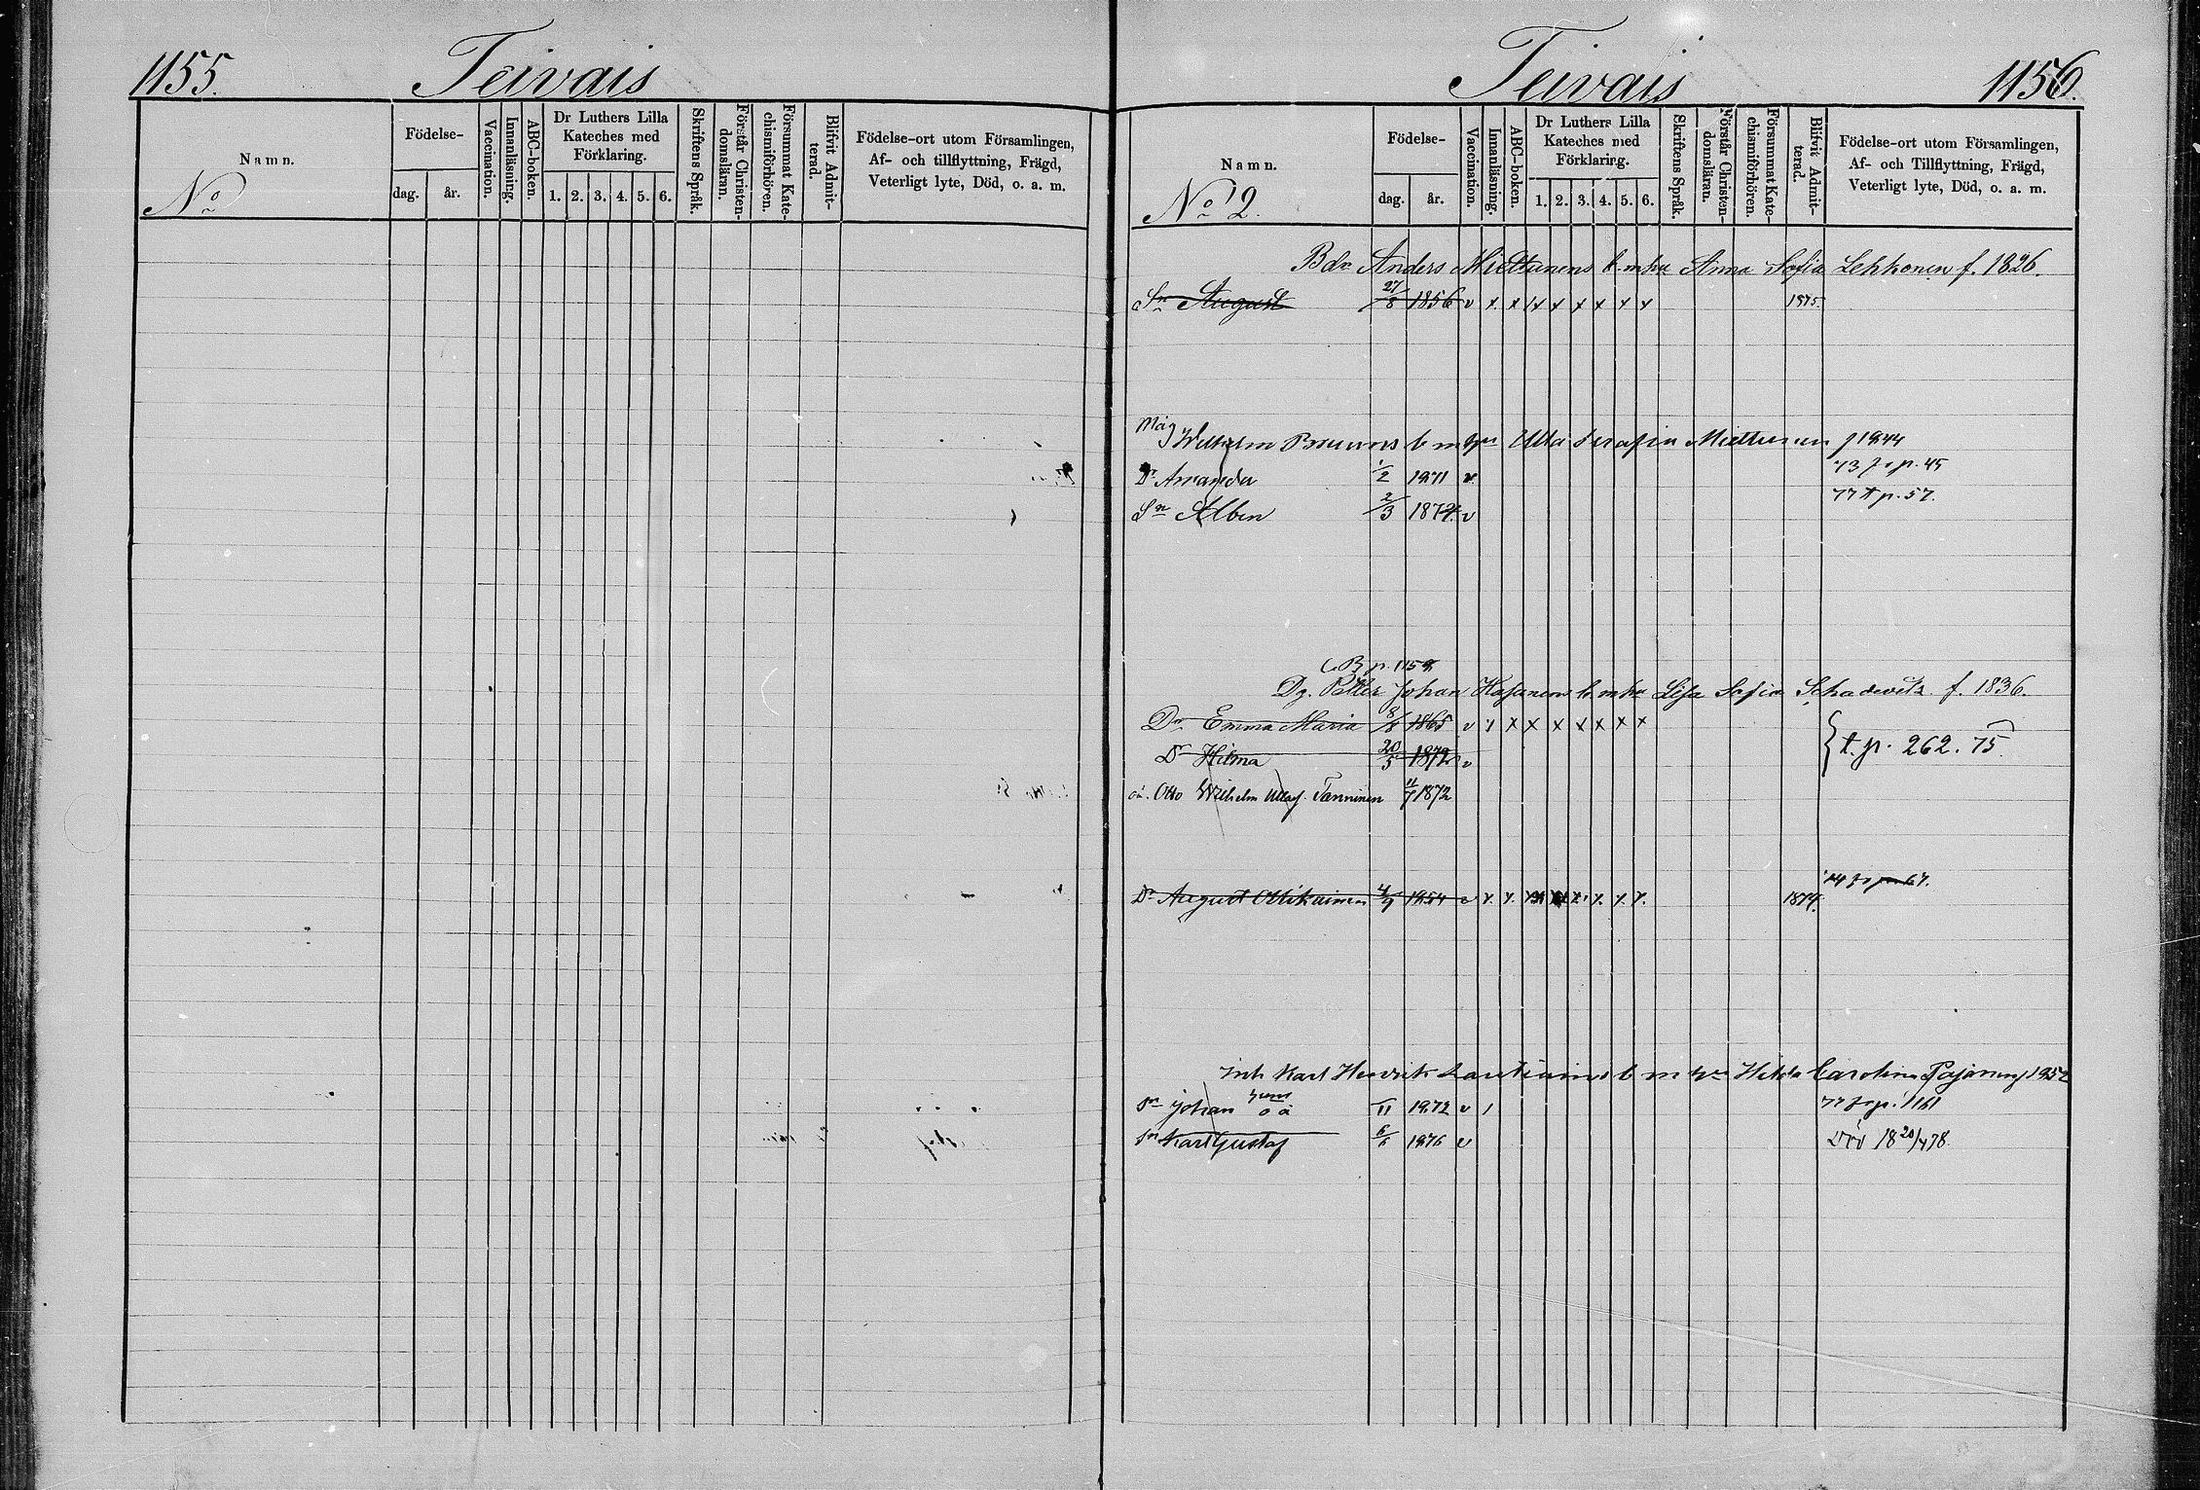 1155. Teivais
Namn.
No
Födelse-
dag. år.
Vaccination.
Innanläsning.
ABC-boken.
Dr Luthers Lilla
Kateches med
Förklaring.
1. 2. 3. 4. 5. 6.
Skriftens Språk.
Förstår Christen-
domsläran.
Försummat Kate-
chismiförhören.
Blifvit Admit-
terad.
Födelse-ort utom Församlingen,
Af- och tillflyttning, Frägd,
Veterligt lyte, Död, o. a. m.
Teivais 1156.
Namn.
No 2.
Födelse-
dag. år.
Vaccination.
Innanläsning.
ABC-boken.
Dr Luthers Lilla
Kateches med
Förklaring.
1. 2. 3. 4. 5. 6.
Skriftens Språk.
Förstår Christen-
domsläran.
Försummat Kate-
chismiförhören.
Blifvit Admit-
terad.
Födelse-ort utom Församlingen,
Af- och Tillflyttning, Frägd,
Veterligt lyte, Död, o. a. m.
Bdr Anders Miettunens b. m hu Anna Sofia Lehkonen f. 1826.
Sn August 27/8 1856 v x x x x x x x x 1875.
Måg Wilhelm b m hu Ulla Serafia Miettunen f 1844
Dr Amanda 1/2 1871 v 73 fr p. 45
Sn Albin 2/3 1874 v 77 t p. 57.
Dg. Petter Johan Kasanens b. m hu Lisa Sofia Schadewitz f. 1836.
Dr Emma Maria 8/8 1865 v x x x x x x x x
Dr Hilma 20/5 1872 v t. p. 262. 75
oä. Otto Wilhelm Tanninen 11/7 1872
Dr August Ollikainen 4/9 1854 v x. x. x x x. x. x. 1874.
Inh Karl Henrik b m hu Hilda Carolina Pajanen f 1852
Sn Johan oä /11 1872 v / 77 fr p. 1161
Sn Karl Gustaf 6/6 1876 v Död 18 20/4 78.